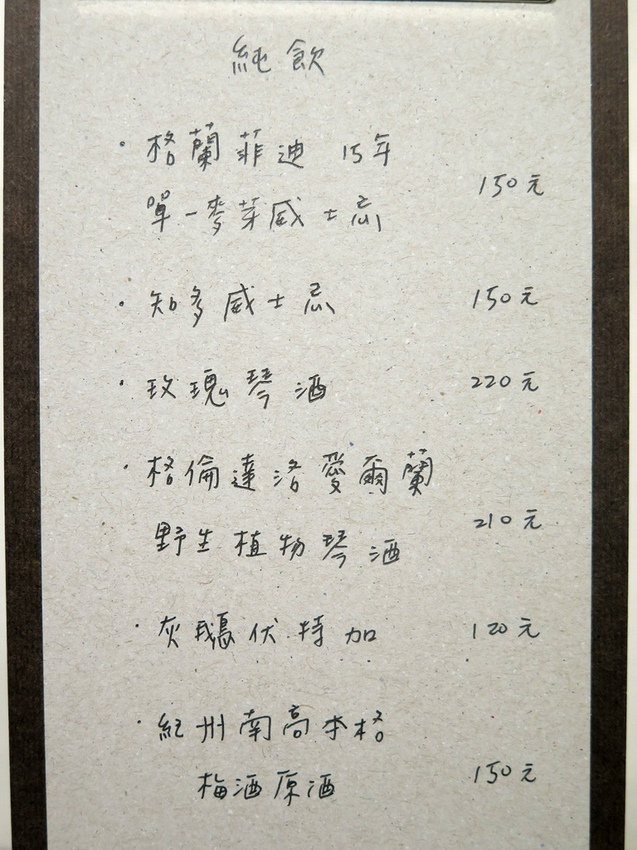 純飲
· 格蘭菲迪 15年
單一麥芽威士忌 150元
· 知多威士忌 150元
· 玫瑰琴酒 220元
· 格倫達洛愛爾蘭
野生植物琴酒 210元
· 灰鵝伏特加 120元
· 紀州南高本格
梅酒原酒 150元